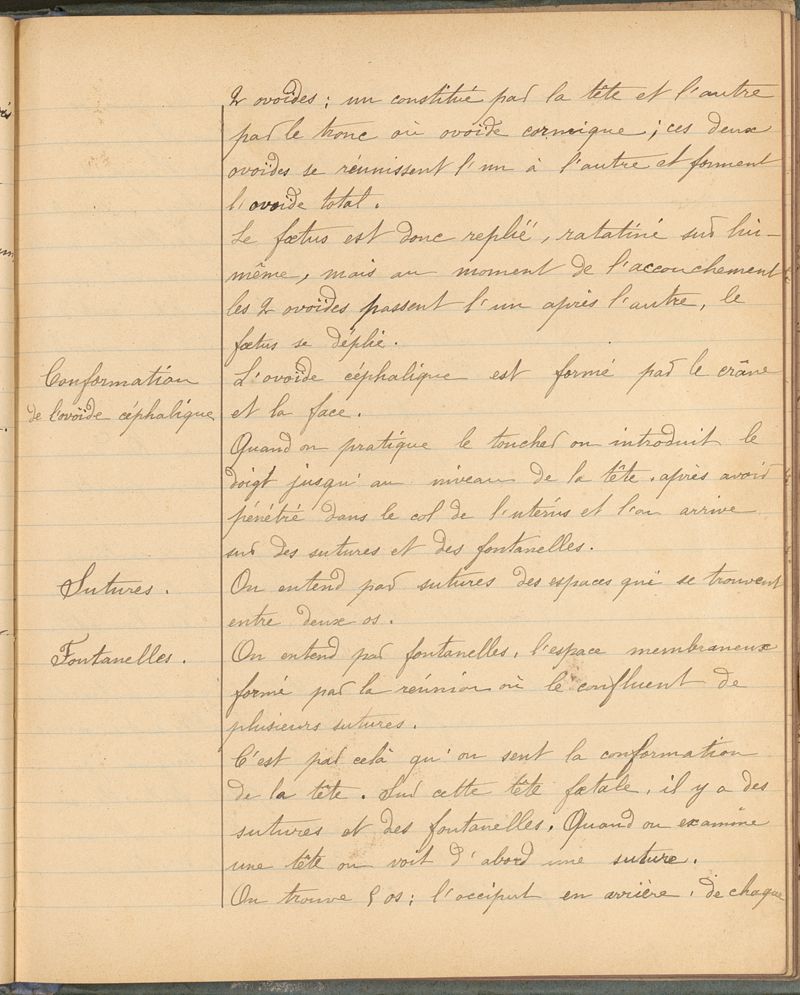 2 ovoïdes ; un constitué par la tête et l'autre
par le tronc où ovoïde cormique ; ces deux
ovoïdes se réunissent l'un à l'autre et forment
l'ovoïde total.
Le fœtus est donc replié, ratatiné sur lui-
même, mais au moment de l'accouchement
les 2 ovoïdes passent l'un après l'autre, le
fœtus se déplie.
Conformation
de l'ovoïde céphalique
L'ovoïde céphalique est formé par le crâne
et la face.
Quand on pratique le toucher on introduit le
doigt jusqu'au niveau de la tête. après avoir
pénétré dans le col de l'utérus et l'on arrive
sur des sutures et des fontanelles.
Sutures.
On entend par sutures des espaces qui se trouvent
entre deux os.
Fontanelles.
On entend par fontanelles, l'espace membraneux
formé par la réunion où le confluent de
plusieurs sutures.
C'est par celà qu'on sent la conformation
de la tête. Sur cette tête fœtale, il y a des
sutures et des fontanelles. Quand on examine
une tête on voit d'abord une suture.
On trouve 5 os ; l'occiput en arrière, de chaque